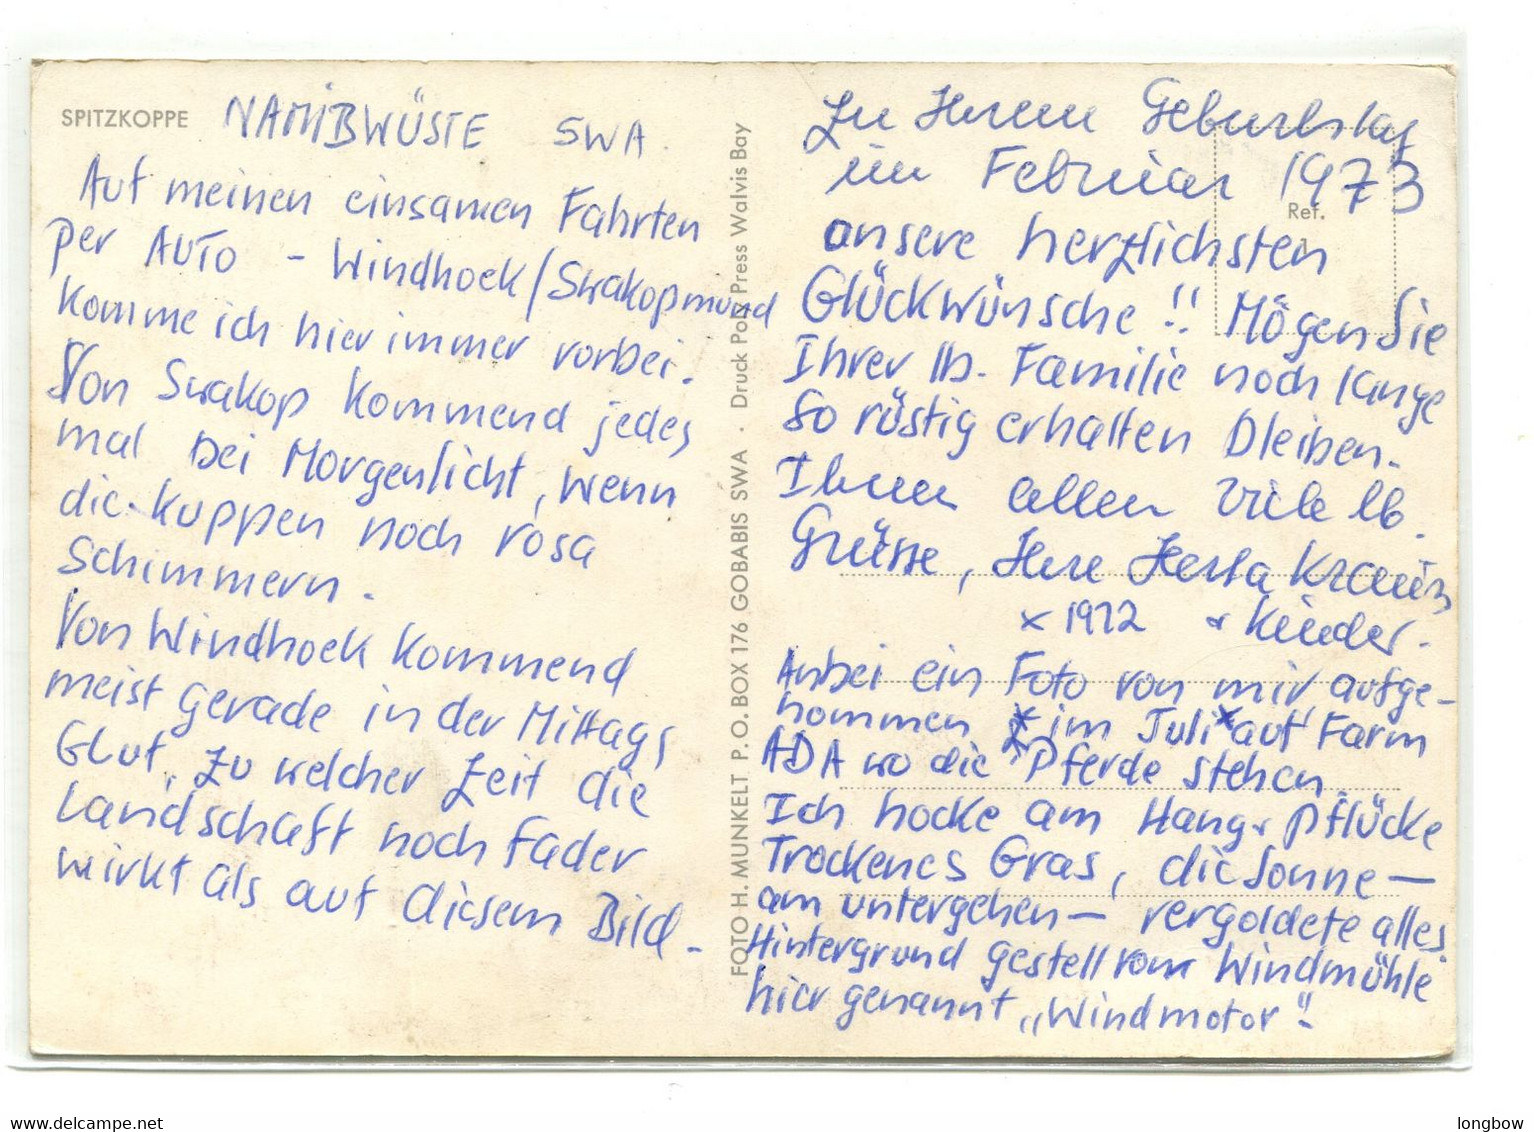 SPITZKOPPE NAMIBWÜSTE SWA.
Auf meinen einsamen Fahrten
per AUTO - Windhoek/Swakopmund
komme ich hier immer vorbei.
Von Swakop kommend jedes
mal bei Morgenlicht, wenn
die Kuppen noch rosa
schimmern.
Von Windhoek kommend
meist gerade in der Mittags
Glut, zu welcher Zeit die
Landschaft noch fader
wirkt als auf diesem Bild -
FOTO H. MUNKELT P.O. BOX 176 GOBABIS SWA · Druck Poly Press Walvis Bay
Ref.
Zu Ihrem Geburtstag
im Februar 1973
unsere herzlichsten
Glückwünsche !! Mögen Sie
Ihrer lb. Familie noch lange
so rüstig erhalten bleiben.
Ihnen allen viele lb.
Grüsse, Ihre Herta
x 1972 + Kinder.
Anbei ein Foto von mir aufge-
nommen * im Juli * auf Farm
ADA wo die Pferde stehen.
Ich hocke am Hang + pflücke
Trockenes Gras, die Sonne —
am untergehen — vergoldete alles.
Hintergrund gestell vom Windmühle
hier genannt „Windmotor"-
www.delcampe.net
longbow